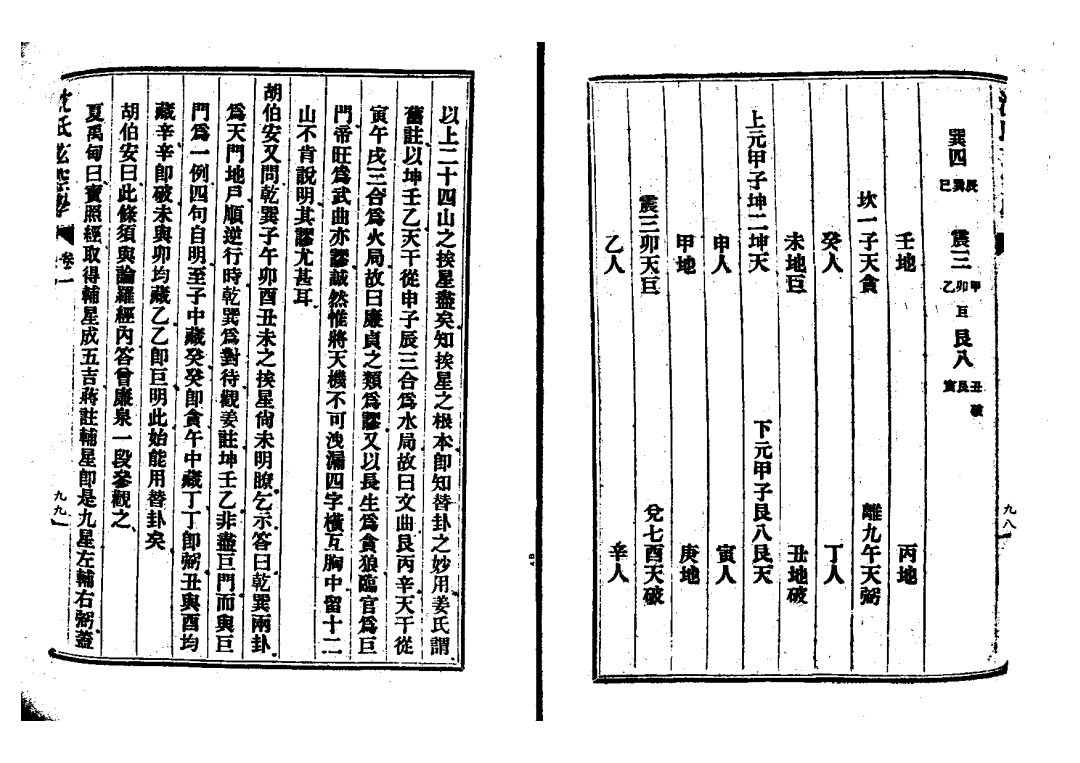 巽四 辰巽巳 震三 甲卯乙 巨 艮八 丑艮寅 破
壬地 丙地
坎一子天貪 離九午天弼
癸人 丁人
未地巨 丑地破
上元甲子坤二坤天 下元甲子艮八艮天
申人 寅人
甲地 庚地
震三卯天巨 兌七酉天破
乙人 辛人
九八
以上二十四山之挨星盡矣知挨星之根本卽知替卦之妙用姜氏謂
舊註以坤壬乙天干從申子辰三合爲水局故曰文曲艮丙辛天干從
寅午戌三合爲火局故曰廉貞之類爲謬又以長生爲貪狼臨官爲巨
門帝旺爲武曲亦謬誠然惟將天機不可洩漏四字橫互胸中留十二
山不肯說明其謬尤甚耳
胡伯安又問乾巽子午卯酉丑未之挨星尙未明瞭乞示答曰乾巽兩卦
爲天門地戶順逆行時乾巽爲對待觀姜註坤壬乙非盡巨門而與巨
門爲一例四句自明至子中藏癸癸卽貪午中藏丁丁卽弼丑與酉均
藏辛辛卽破未與卯均藏乙乙卽巨明此始能用替卦矣
胡伯安曰此條須與論羅經內答曾廉泉一段參觀之
夏禹甸曰寶照經取得輔星成五吉蔣註輔星卽是九星左輔右弼蓋
沈氏玄空學 卷一
九九